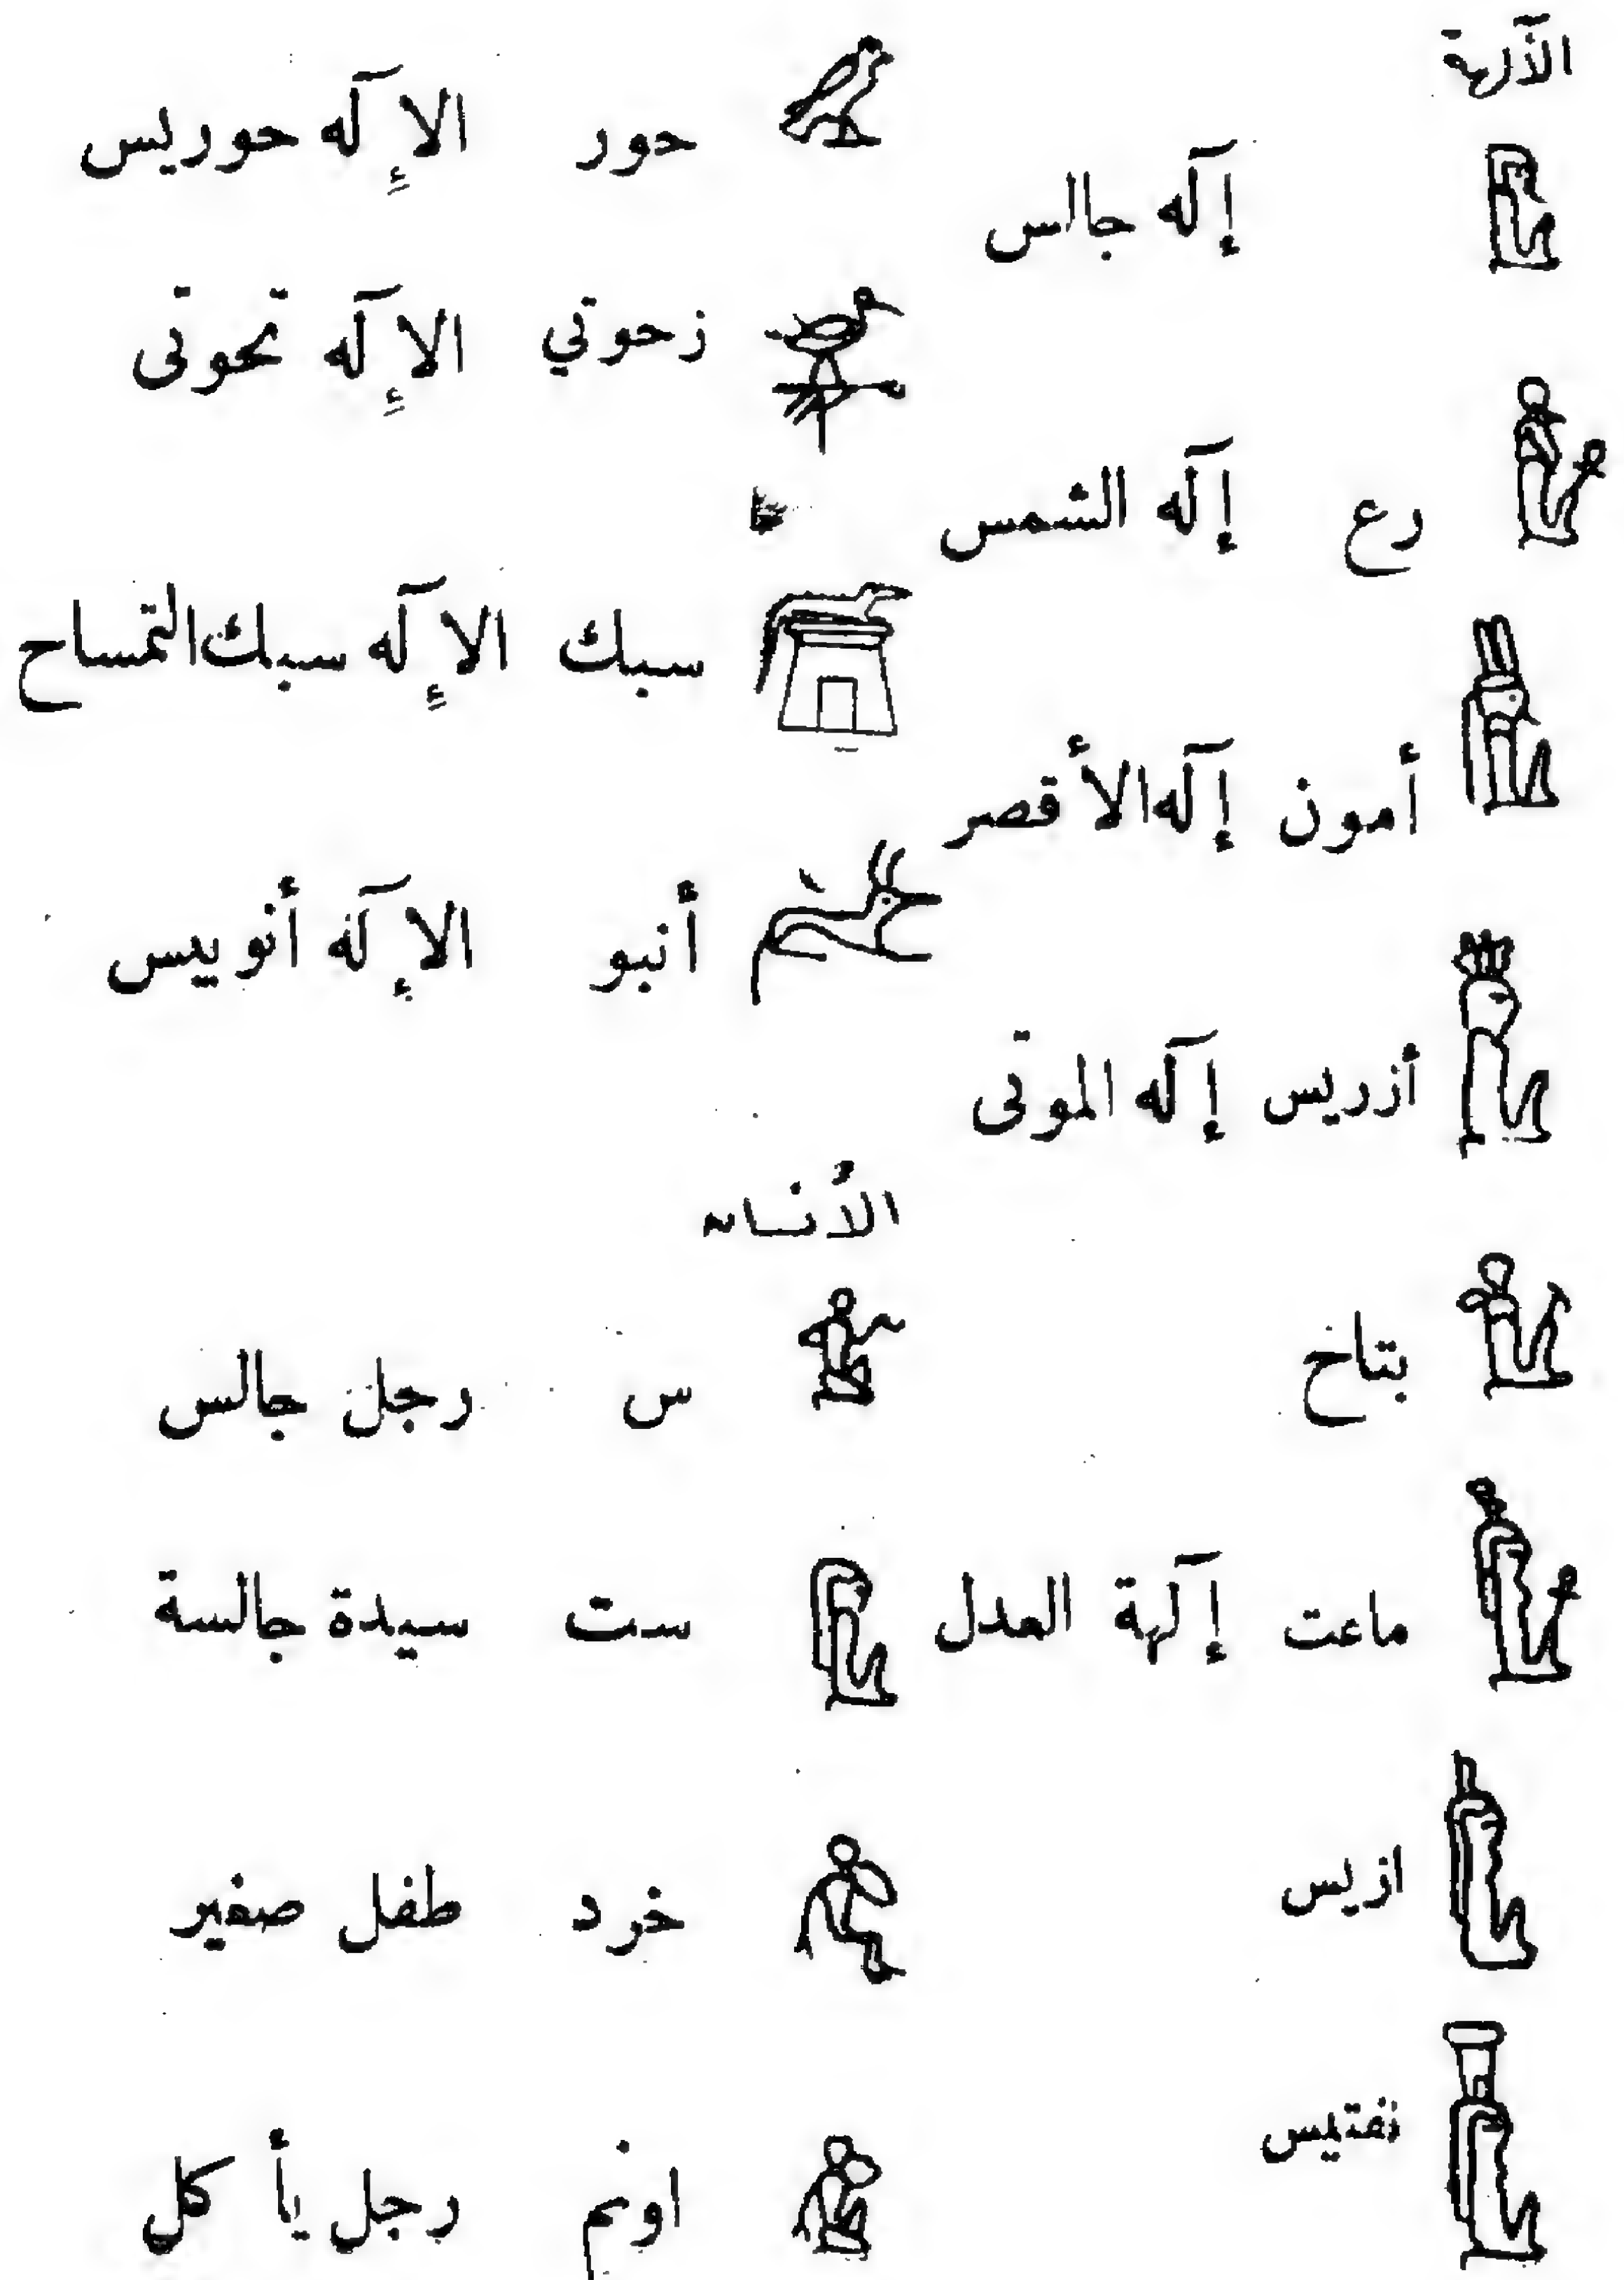 الآلهة
إله جالس
رع إله الشمس
أمون إله الأقصر
أزريس إله الموتى
بتاخ
ماعت إلهة العدل
ازيس
نفتيس
حور الإله حوريس
زحوتي الإله تحوتى
سبك الإله سبك التمساح
أنبو الإله أنوبيس
الأنسان
س رجل جالس
ست سيدة جالسة
خرد طفل صغير
اونم رجل يأكل